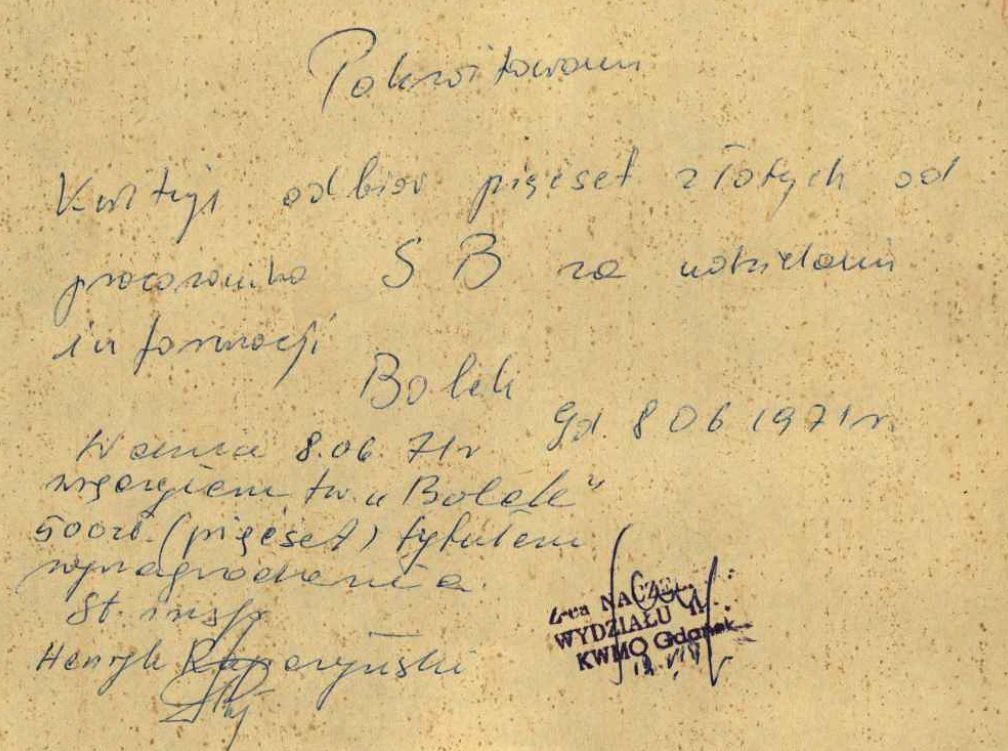 Pokwitowani
Kwituję odbiór pięćset złotych od
pracownika S B za udzielani
informacji
Bolek
Gd 8 06 1971 r.
W dniu 8.06. 71r
wręczyłem tw. "Bolek"
500zł. (pięćset) tytułem
wynagrodzenia.
St. insp
Henryk Rapczyński
Z-ca NACZEL.
WYDZIAŁU
KWMO Gdańsk